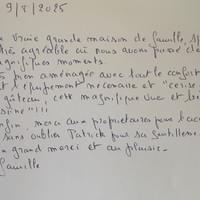 9/8/2025
e vraie grande maison de famille, sp
très agréable où nous avons passé de
agnifiques moments.
s bien aménagée avec tout le confort
t l'équipement nécessaire et "cerise
gâteau, cette magnifique vue et la
sine"!!!
nfin, merci aux propriétaires pour l'acc
sans oublier Patrick pour sa gentillesse.
n grand merci et au plaisir.
famille